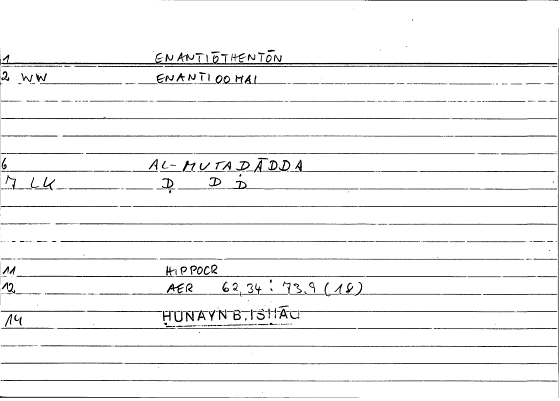 1 ENANTIŌTHENTŌN
2 WW ENANTIOOMAI
6 AL-MUTAḌĀDDA
7 LK Ḍ D Ḍ
11 HIPPOCR
12 AER 62,34 : 73,9 (18)
14 HUNAYN B. ISHĀQ